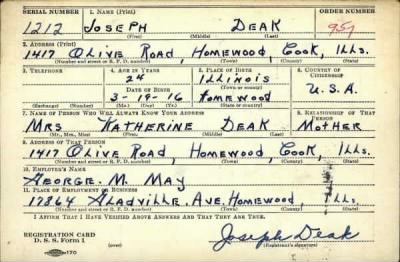 SERIAL NUMBER 1. NAME (Print) ORDER NUMBER
1212 JOSEPH DEAK 957
(First) (Middle) (Last)
2. ADDRESS (Print)
1417 OLIVE ROAD, HOMEWOOD, COOK, ILLS.
(Number and street or R. F. D. number) (Town) (County) (State)
3. TELEPHONE 4. AGE IN YEARS 5. PLACE OF BIRTH 6. COUNTRY OF CITIZENSHIP
24 ILLINOIS
(Town or county)
DATE OF BIRTH
3-19-16 HOMEWOOD U.S.A.
(Exchange) (Number) (Mo.) (Day) (Yr.) (State or country)
7. NAME OF PERSON WHO WILL ALWAYS KNOW YOUR ADDRESS 8. RELATIONSHIP OF THAT PERSON
MRS KATHERINE DEAK MOTHER
(Mr., Mrs., Miss) (First) (Middle) (Last)
9. ADDRESS OF THAT PERSON
1417 OLIVE ROAD, HOMEWOOD, COOK, ILLS.
(Number and street or R. F. D. number) (Town) (County) (State)
10. EMPLOYER'S NAME
GEORGE. M. MAY
11. PLACE OF EMPLOYMENT OR BUSINESS
17864 GLADVILLE. AVE. HOMEWOOD, ILLS.
(Number and street or R. F. D. number) (Town) (County) (State)
I AFFIRM THAT I HAVE VERIFIED ABOVE ANSWERS AND THAT THEY ARE TRUE.
REGISTRATION CARD
D. S. S. Form 1 (over) Joseph Deak
(Registrant's signature)